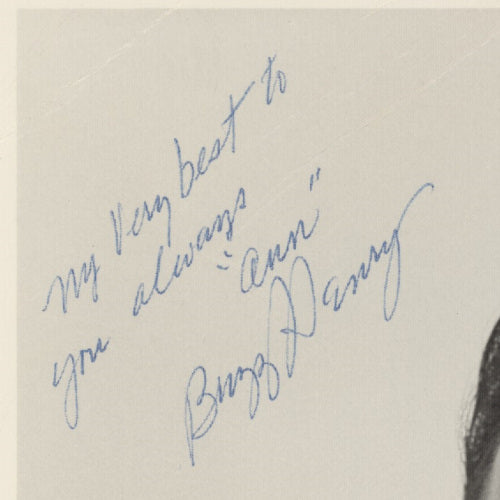 My Very best to
you always
"Ann"
Buzz Henry